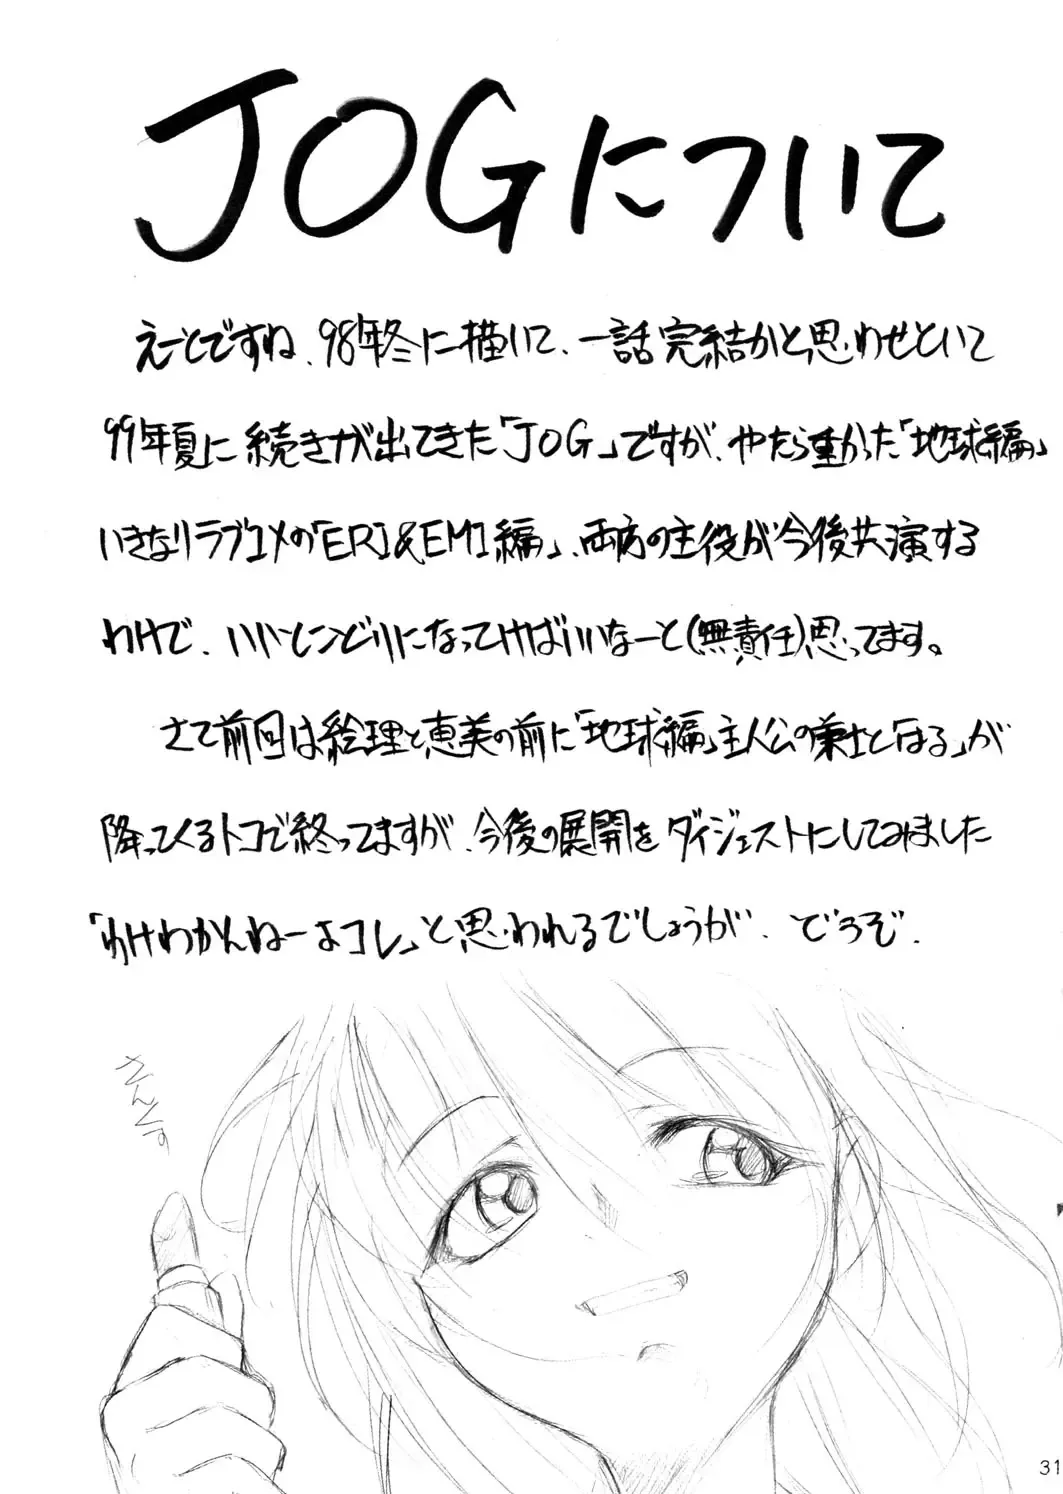 JOGについて
えーとですね、98年冬に描いて、一話完結かと思わせといて
99年夏に続きが出てきた「JOG」ですが、やたら重かった「地球編」
いきなりラブコメの「ERI&EMI編」、両方の主役が今後共演する
わけで、いいとこどりになってければいいなーと(無責任)思ってます。
さて前回は絵理と恵美の前に「地球編」主人公の兼士と「はる」が
降ってくるトコで終ってますが、今後の展開をダイジェストにしてみました
「わけわかんねーよコレ」と思われるでしょうが、どうぞ。
31